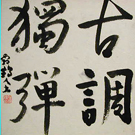 古調
獨彈